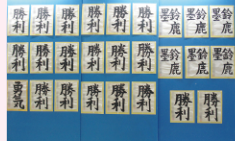 勝利 勝利 勝利 勝利 勝利 鈴鹿墨 鈴鹿墨 鈴鹿墨
勝利 勝利 勝利 勝利 勝利 勝利 鈴鹿墨 鈴鹿墨 鈴鹿墨
勇気 勝利 勝利 勝利 勝利 勝利 勝利 勝利